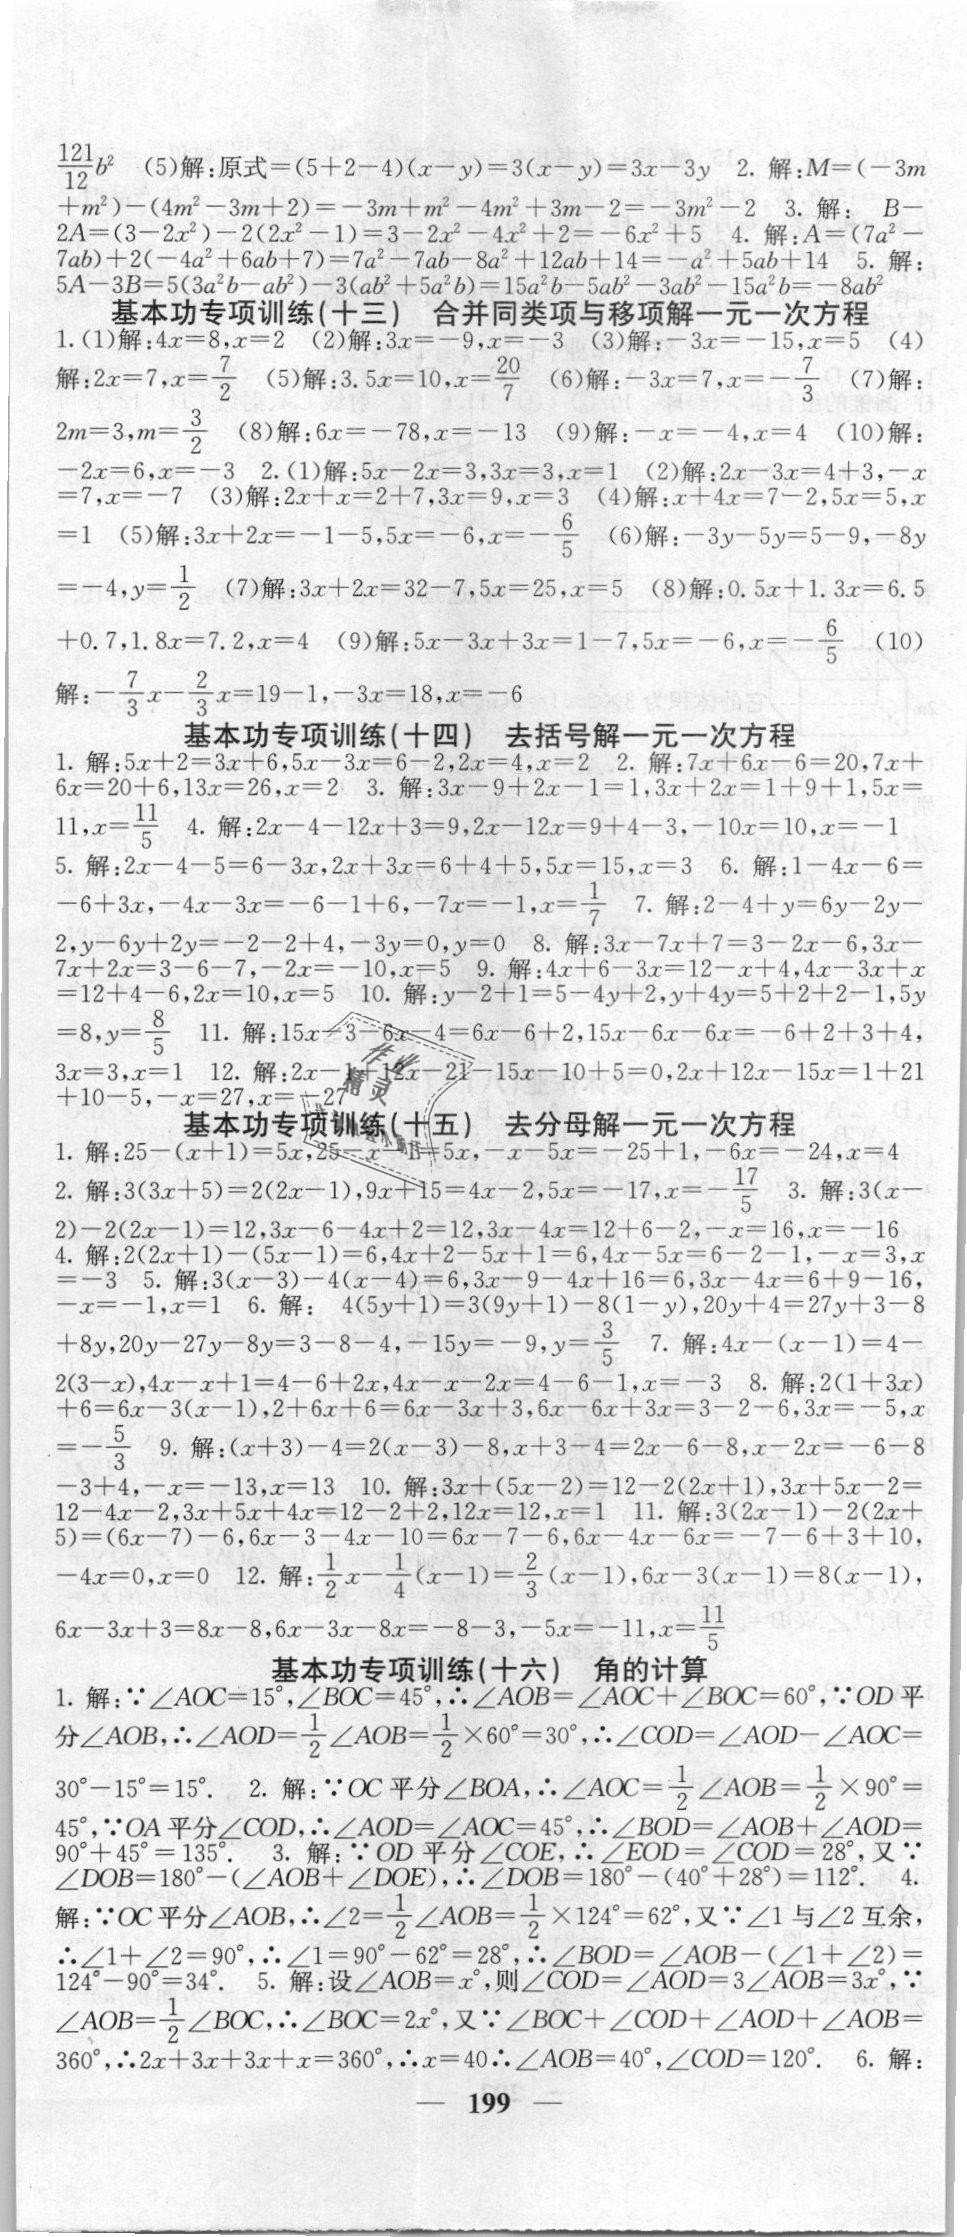 121/12 b² (5)解:原式=(5+2-4)(x-y)=3(x-y)=3x-3y 2. 解:M=(-3m
+m²)-(4m²-3m+2)=-3m+m²-4m²+3m-2=-3m²-2 3. 解: B-
2A=(3-2x²)-2(2x²-1)=3-2x²-4x²+2=-6x²+5 4. 解:A=(7a²-
7ab)+2(-4a²+6ab+7)=7a²-7ab-8a²+12ab+14=-a²+5ab+14 5. 解:
5A-3B=5(3a²b-ab²)-3(ab²+5a²b)=15a²b-5ab²-3ab²-15a²b=-8ab²
基本功专项训练(十三) 合并同类项与移项解一元一次方程
1.(1)解:4x=8,x=2 (2)解:3x=-9,x=-3 (3)解:-3x=-15,x=5 (4)
解:2x=7,x=7/2 (5)解:3.5x=10,x=20/7 (6)解:-3x=7,x=-7/3 (7)解:
2m=3,m=3/2 (8)解:6x=-78,x=-13 (9)解:-x=-4,x=4 (10)解:
-2x=6,x=-3 2.(1)解:5x-2x=3,3x=3,x=1 (2)解:2x-3x=4+3,-x
=7,x=-7 (3)解:2x+x=2+7,3x=9,x=3 (4)解:x+4x=7-2,5x=5,x
=1 (5)解:3x+2x=-1-5,5x=-6,x=-6/5 (6)解:-3y-5y=5-9,-8y
=-4,y=1/2 (7)解:3x+2x=32-7,5x=25,x=5 (8)解:0.5x+1.3x=6.5
+0.7,1.8x=7.2,x=4 (9)解:5x-3x+3x=1-7,5x=-6,x=-6/5 (10)
解:-7/3x-2/3x=19-1,-3x=18,x=-6
基本功专项训练(十四) 去括号解一元一次方程
1. 解:5x+2=3x+6,5x-3x=6-2,2x=4,x=2 2. 解:7x+6x-6=20,7x+
6x=20+6,13x=26,x=2 3. 解:3x-9+2x-1=1,3x+2x=1+9+1,5x=
11,x=11/5 4. 解:2x-4-12x+3=9,2x-12x=9+4-3,-10x=10,x=-1
5. 解:2x-4-5=6-3x,2x+3x=6+4+5,5x=15,x=3 6. 解:1-4x-6=
-6+3x,-4x-3x=-6-1+6,-7x=-1,x=1/7 7. 解:2-4+y=6y-2y-
2,y-6y+2y=-2-2+4,-3y=0,y=0 8. 解:3x-7x+7=3-2x-6,3x-
7x+2x=3-6-7,-2x=-10,x=5 9. 解:4x+6-3x=12-x+4,4x-3x+x
=12+4-6,2x=10,x=5 10. 解:y-2+1=5-4y+2,y+4y=5+2+2-1,5y
=8,y=8/5 11. 解:15x-3-6x-4=6x-6+2,15x-6x-6x=-6+2+3+4,
3x=3,x=1 12. 解:2x-1+12x-21-15x-10+5=0,2x+12x-15x=1+21
+10-5,-x=27,x=-27
基本功专项训练(十五) 去分母解一元一次方程
1. 解:25-(x+1)=5x,25-x-1=5x,-x-5x=-25+1,-6x=-24,x=4
2. 解:3(3x+5)=2(2x-1),9x+15=4x-2,5x=-17,x=-17/5 3. 解:3(x-
2)-2(2x-1)=12,3x-6-4x+2=12,3x-4x=12+6-2,-x=16,x=-16
4. 解:2(2x+1)-(5x-1)=6,4x+2-5x+1=6,4x-5x=6-2-1,-x=3,x
=-3 5. 解:3(x-3)-4(x-4)=6,3x-9-4x+16=6,3x-4x=6+9-16,
-x=-1,x=1 6. 解: 4(5y+1)=3(9y+1)-8(1-y),20y+4=27y+3-8
+8y,20y-27y-8y=3-8-4,-15y=-9,y=3/5 7. 解:4x-(x-1)=4-
2(3-x),4x-x+1=4-6+2x,4x-x-2x=4-6-1,x=-3 8. 解:2(1+3x)
+6=6x-3(x-1),2+6x+6=6x-3x+3,6x-6x+3x=3-2-6,3x=-5,x
=-5/3 9. 解:(x+3)-4=2(x-3)-8,x+3-4=2x-6-8,x-2x=-6-8
-3+4,-x=-13,x=13 10. 解:3x+(5x-2)=12-2(2x+1),3x+5x-2=
12-4x-2,3x+5x+4x=12-2+2,12x=12,x=1 11. 解:3(2x-1)-2(2x+
5)=(6x-7)-6,6x-3-4x-10=6x-7-6,6x-4x-6x=-7-6+3+10,
-4x=0,x=0 12. 解:1/2x-1/4(x-1)=2/3(x-1),6x-3(x-1)=8(x-1),
6x-3x+3=8x-8,6x-3x-8x=-8-3,-5x=-11,x=11/5
基本功专项训练(十六) 角的计算
1. 解:∵∠AOC=15°,∠BOC=45°,∴∠AOB=∠AOC+∠BOC=60°,∵OD平
分∠AOB,∴∠AOD=1/2∠AOB=1/2×60°=30°,∴∠COD=∠AOD-∠AOC=
30°-15°=15°. 2. 解:∵OC平分∠BOA,∴∠AOC=1/2∠AOB=1/2×90°=
45°,∵OA平分∠COD,∴∠AOD=∠AOC=45°,∴∠BOD=∠AOB+∠AOD=
90°+45°=135°. 3. 解:∵OD平分∠COE,∴∠EOD=∠COD=28°,又∵
∠DOB=180°-(∠AOB+∠DOE),∴∠DOB=180°-(40°+28°)=112°. 4.
解:∵OC平分∠AOB,∴∠2=1/2∠AOB=1/2×124°=62°,又∵∠1与∠2互余,
∴∠1+∠2=90°,∴∠1=90°-62°=28°,∴∠BOD=∠AOB-(∠1+∠2)=
124°-90°=34°. 5. 解:设∠AOB=x°,则∠COD=∠AOD=3∠AOB=3x°,∵
∠AOB=1/2∠BOC,∴∠BOC=2x°,又∵∠BOC+∠COD+∠AOD+∠AOB=
360°,∴2x+3x+3x+x=360°,∴x=40∴∠AOB=40°,∠COD=120°. 6. 解:
— 199 —
作业
精灵